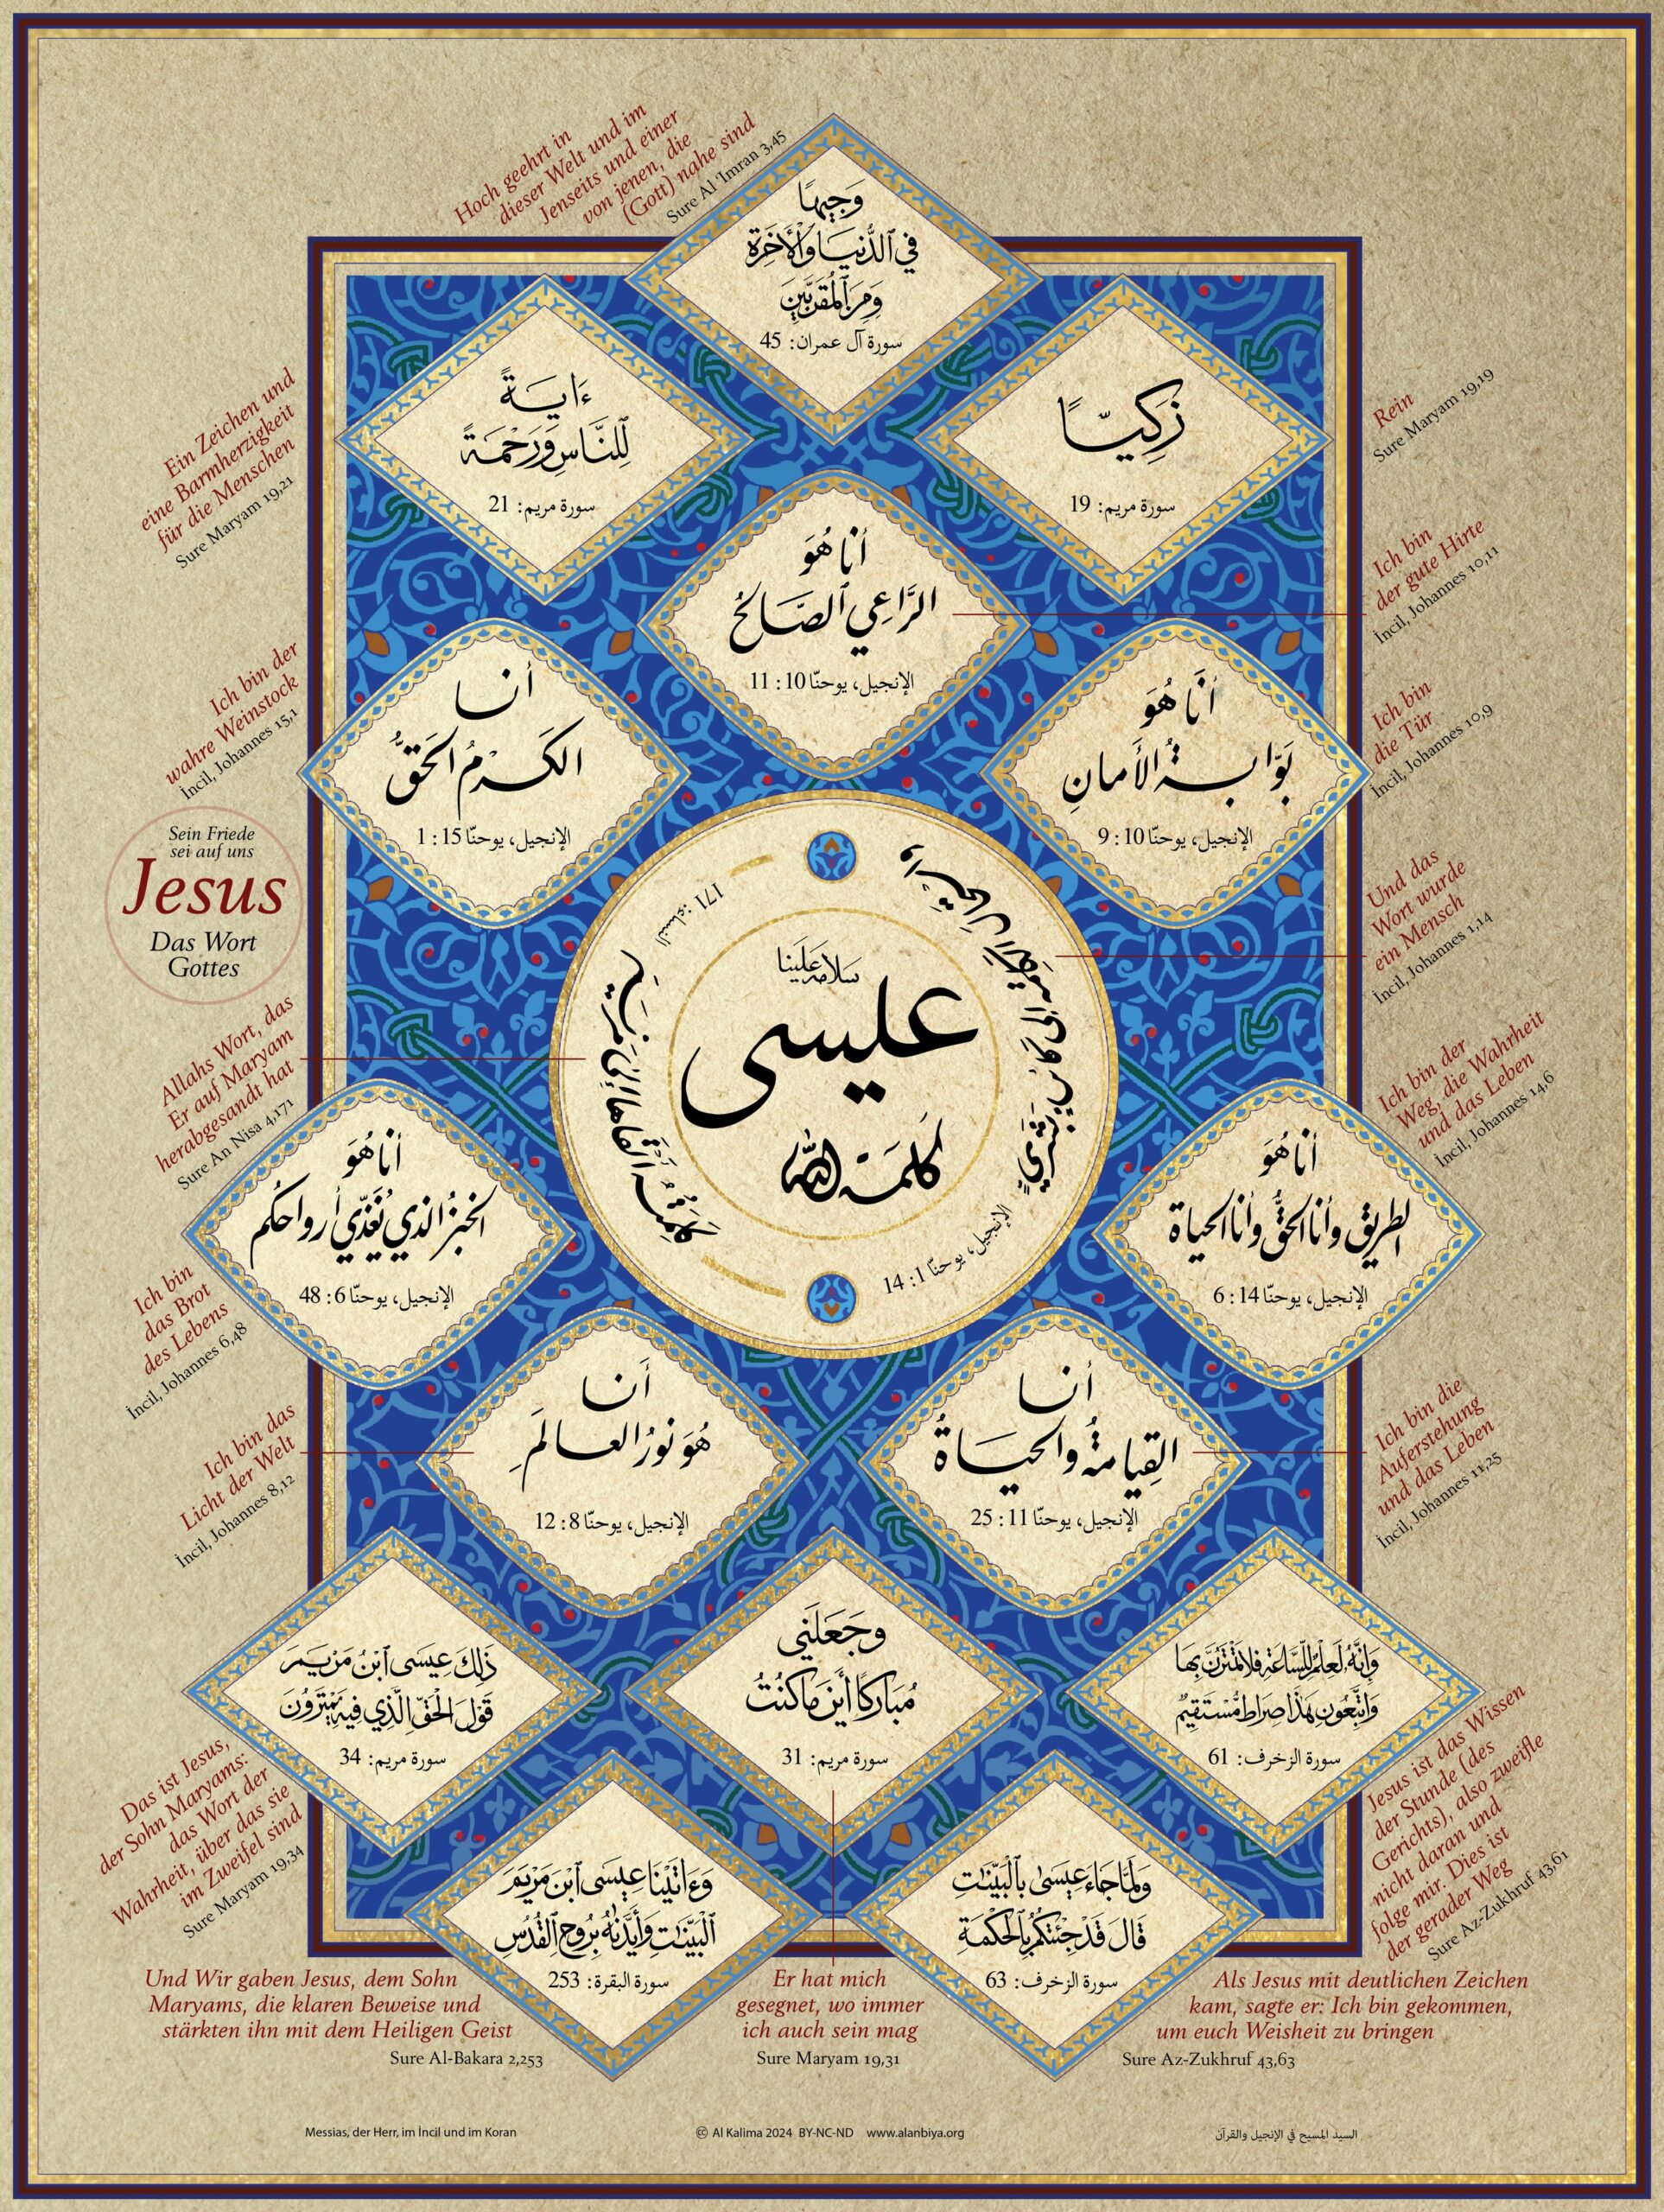 Hoch geehrt in
dieser Welt und im
Jenseits und einer
von jenen, die
(Gott) nahe sind
Sure Al 'Imran 3,45
وَجِيهًا
فِي ٱلدُّنْيَا وَٱلْأَخِرَةِ
وَمِنَ ٱلْمُقَرَّبِينَ
سورة آل عمران: 45
Ein Zeichen und
eine Barmherzigkeit
für die Menschen
Sure Maryam 19,21
ءَايَةً
لِّلنَّاسِ وَرَحْمَةً
سورة مريم: 21
زَكِيًّا
سورة مريم: 19
Rein
Sure Maryam 19,19
أنا هُوَ
الرَّاعِي ٱلصَّالحُ
الإنجيل، يوحنّا 10: 11
Ich bin
der gute Hirte
İncil, Johannes 10,11
Ich bin der
wahre Weinstock
İncil, Johannes 15,1
أنا
الكَرْمُ الحَقُّ
الإنجيل، يوحنّا 15: 1
أنَا هُوَ
بَوّابةُ الأَمانِ
الإنجيل، يوحنّا 10: 9
Ich bin
die Tür
İncil, Johannes 10,9
Sein Friede
sei auf uns
Jesus
Das Wort
Gottes
سلامه علينا
عيسى
كلمة الله
النساء: 171
الإنجيل، يوحنّا 1: 14
Und das
Wort wurde
ein Mensch
İncil, Johannes 1,14
Allahs Wort, das
Er auf Maryam
herabgesandt hat
Sure An Nisa 4,171
أنا هُوَ
الخبزُ الذي نُغَذّي أرواحكُم
الإنجيل، يوحنّا 6: 48
Ich bin
das Brot
des Lebens
İncil, Johannes 6,48
أنا هُوَ
الطريق وأنا الحقُّ وأنا الحياة
الإنجيل، يوحنّا 14: 6
Ich bin der
Weg, die Wahrheit
und das Leben
İncil, Johannes 14,6
Ich bin das
Licht der Welt
İncil, Johannes 8,12
أنا
هُوَ نورُ العالمَ
الإنجيل، يوحنّا 8: 12
أنا
القِيامةُ والحياةُ
الإنجيل، يوحنّا 11: 25
Ich bin die
Auferstehung
und das Leben
İncil, Johannes 11,25
ذَلِكَ عِيسَى ٱبْنُ مَرْيَمَ
قَوْلَ الْحَقِّ الَّذِي فِيهِ يَمْتَرُونَ
سورة مريم: 34
Das ist Jesus,
der Sohn Maryams:
das Wort der
Wahrheit, über das sie
im Zweifel sind
Sure Maryam 19,34
وَجَعَلَنِي
مُبَارَكًا أَيْنَ مَا كُنْتُ
سورة مريم: 31
وَإِنَّهُ لَعِلْمٌ لِّلسَّاعَةِ فَلَا تَمْتَرُنَّ بِهَا
وَاتَّبِعُونِ هَٰذَا صِرَاطٌ مُّسْتَقِيمٌ
سورة الزخرف: 61
Jesus ist das Wissen
der Stunde (des
Gerichts), also zweifle
nicht daran und
folge mir. Dies ist
der gerader Weg
Sure Az-Zukhruf 43,61
وَءَاتَيْنَا عِيسَى ٱبْنَ مَرْيَمَ
الْبَيِّنَٰتِ وَأَيَّدْنَٰهُ بِرُوحِ الْقُدُسِ
سورة البقرة: 253
وَلَمَّا جَاءَ عِيسَىٰ بِالْبَيِّنَٰتِ
قَالَ قَدْ جِئْتُكُم بِالْحِكْمَةِ
سورة الزخرف: 63
Und Wir gaben Jesus, dem Sohn
Maryams, die klaren Beweise und
stärkten ihn mit dem Heiligen Geist
Sure Al-Bakara 2,253
Er hat mich
gesegnet, wo immer
ich auch sein mag
Sure Maryam 19,31
Als Jesus mit deutlichen Zeichen
kam, sagte er: Ich bin gekommen,
um euch Weisheit zu bringen
Sure Az-Zukhruf 43,63
Messias, der Herr, im İncil und im Koran
Al Kalima 2024 BY-NC-ND www.alanbiya.org
السيد المسيح في الإنجيل والقرآن